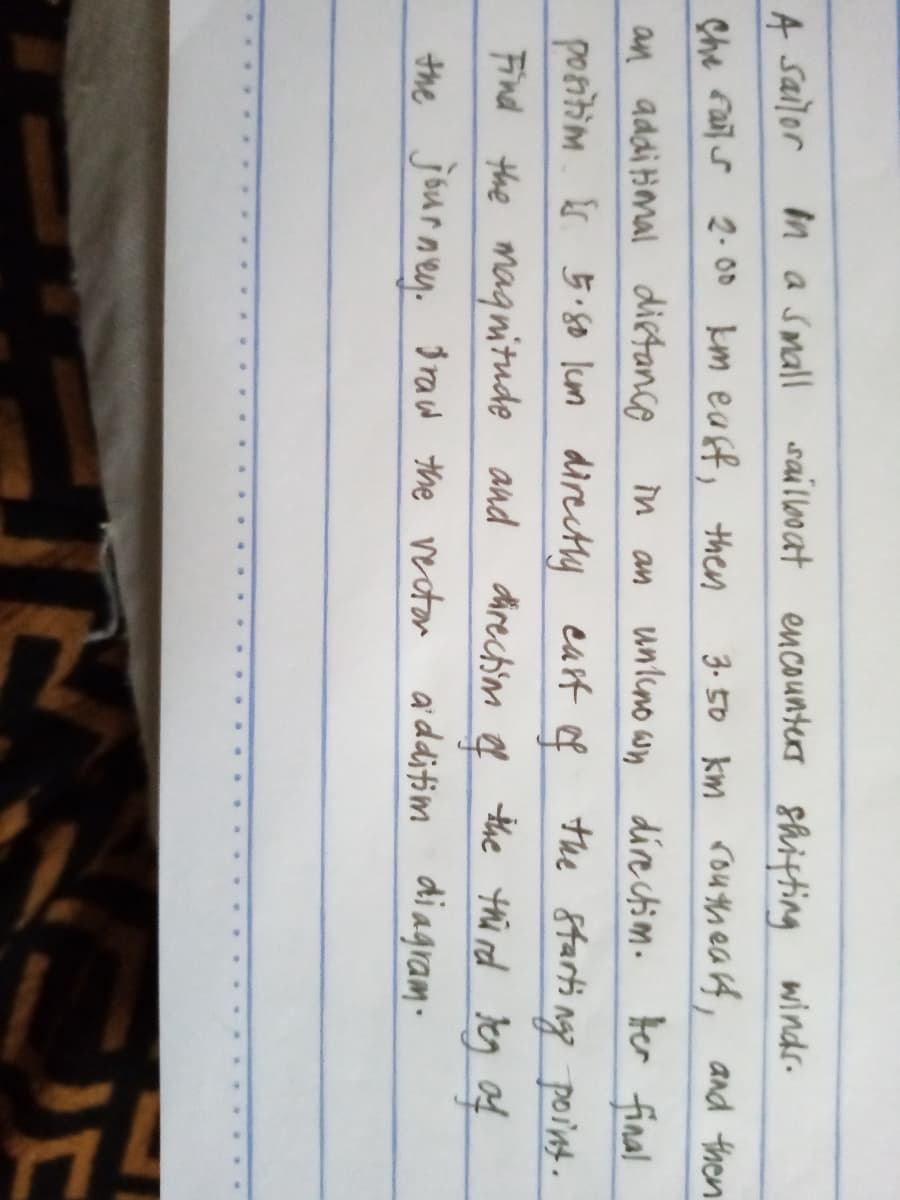 A sailor in a small sailboat encounters shifting winds.
She sails 2.00 km east, then 3.50 km southeast, and then
an additional distance in an unknown direction. Her final
position is 5.80 km directly east of the starting point.
Find the magnitude and direction of the third leg of
the journey. Draw the vector addition diagram.